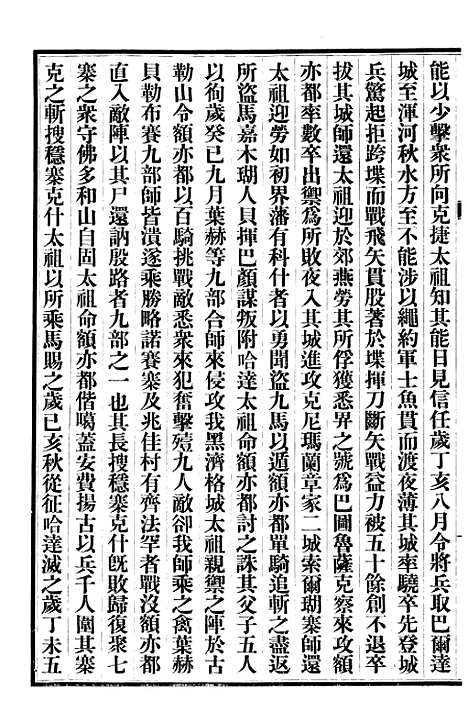 能以少擊衆所向克捷太祖知其能日見信任歲丁亥八月令將兵取巴爾達
城至渾河秋水方至不能涉以繩約軍士魚貫而渡夜薄其城率驍卒先登城
兵驚起拒跨堞而戰飛矢貫股著於堞揮刀斷矢戰益力被五十餘創不退卒
拔其城師還太祖迎於郊燕勞其所俘獲悉畀之號爲巴圖魯薩克察來攻額
亦都率數卒出禦爲所敗夜入其城進攻克尼瑪蘭章家二城索爾瑚寨師還
太祖迎勞如初界藩有科什者以勇聞盜九馬以遁額亦都單騎追斬之盡返
所盜馬嘉木瑚人貝揮巴顏謀叛附哈達太祖命額亦都討之誅其父子五人
以徇歲癸巳九月葉赫等九部合師來侵攻我黑濟格城太祖親禦之陣於古
勒山令額亦都以百騎挑戰敵悉衆來犯奮擊殪九人敵卻我師乘之禽葉赫
貝勒布賽九部師皆潰遂乘勝略諾賽寨及兆佳村有齊法罕者戰沒額亦都
直入敵陣以其尸還訥殷路者九部之一也其長搜穩寨克什旣敗歸復聚七
寨之衆守佛多和山自固太祖命額亦都偕噶蓋安費揚古以兵千人圍其寨
克之斬搜穩寨克什太祖以所乘馬賜之歲己亥秋從征哈達滅之歲丁未五